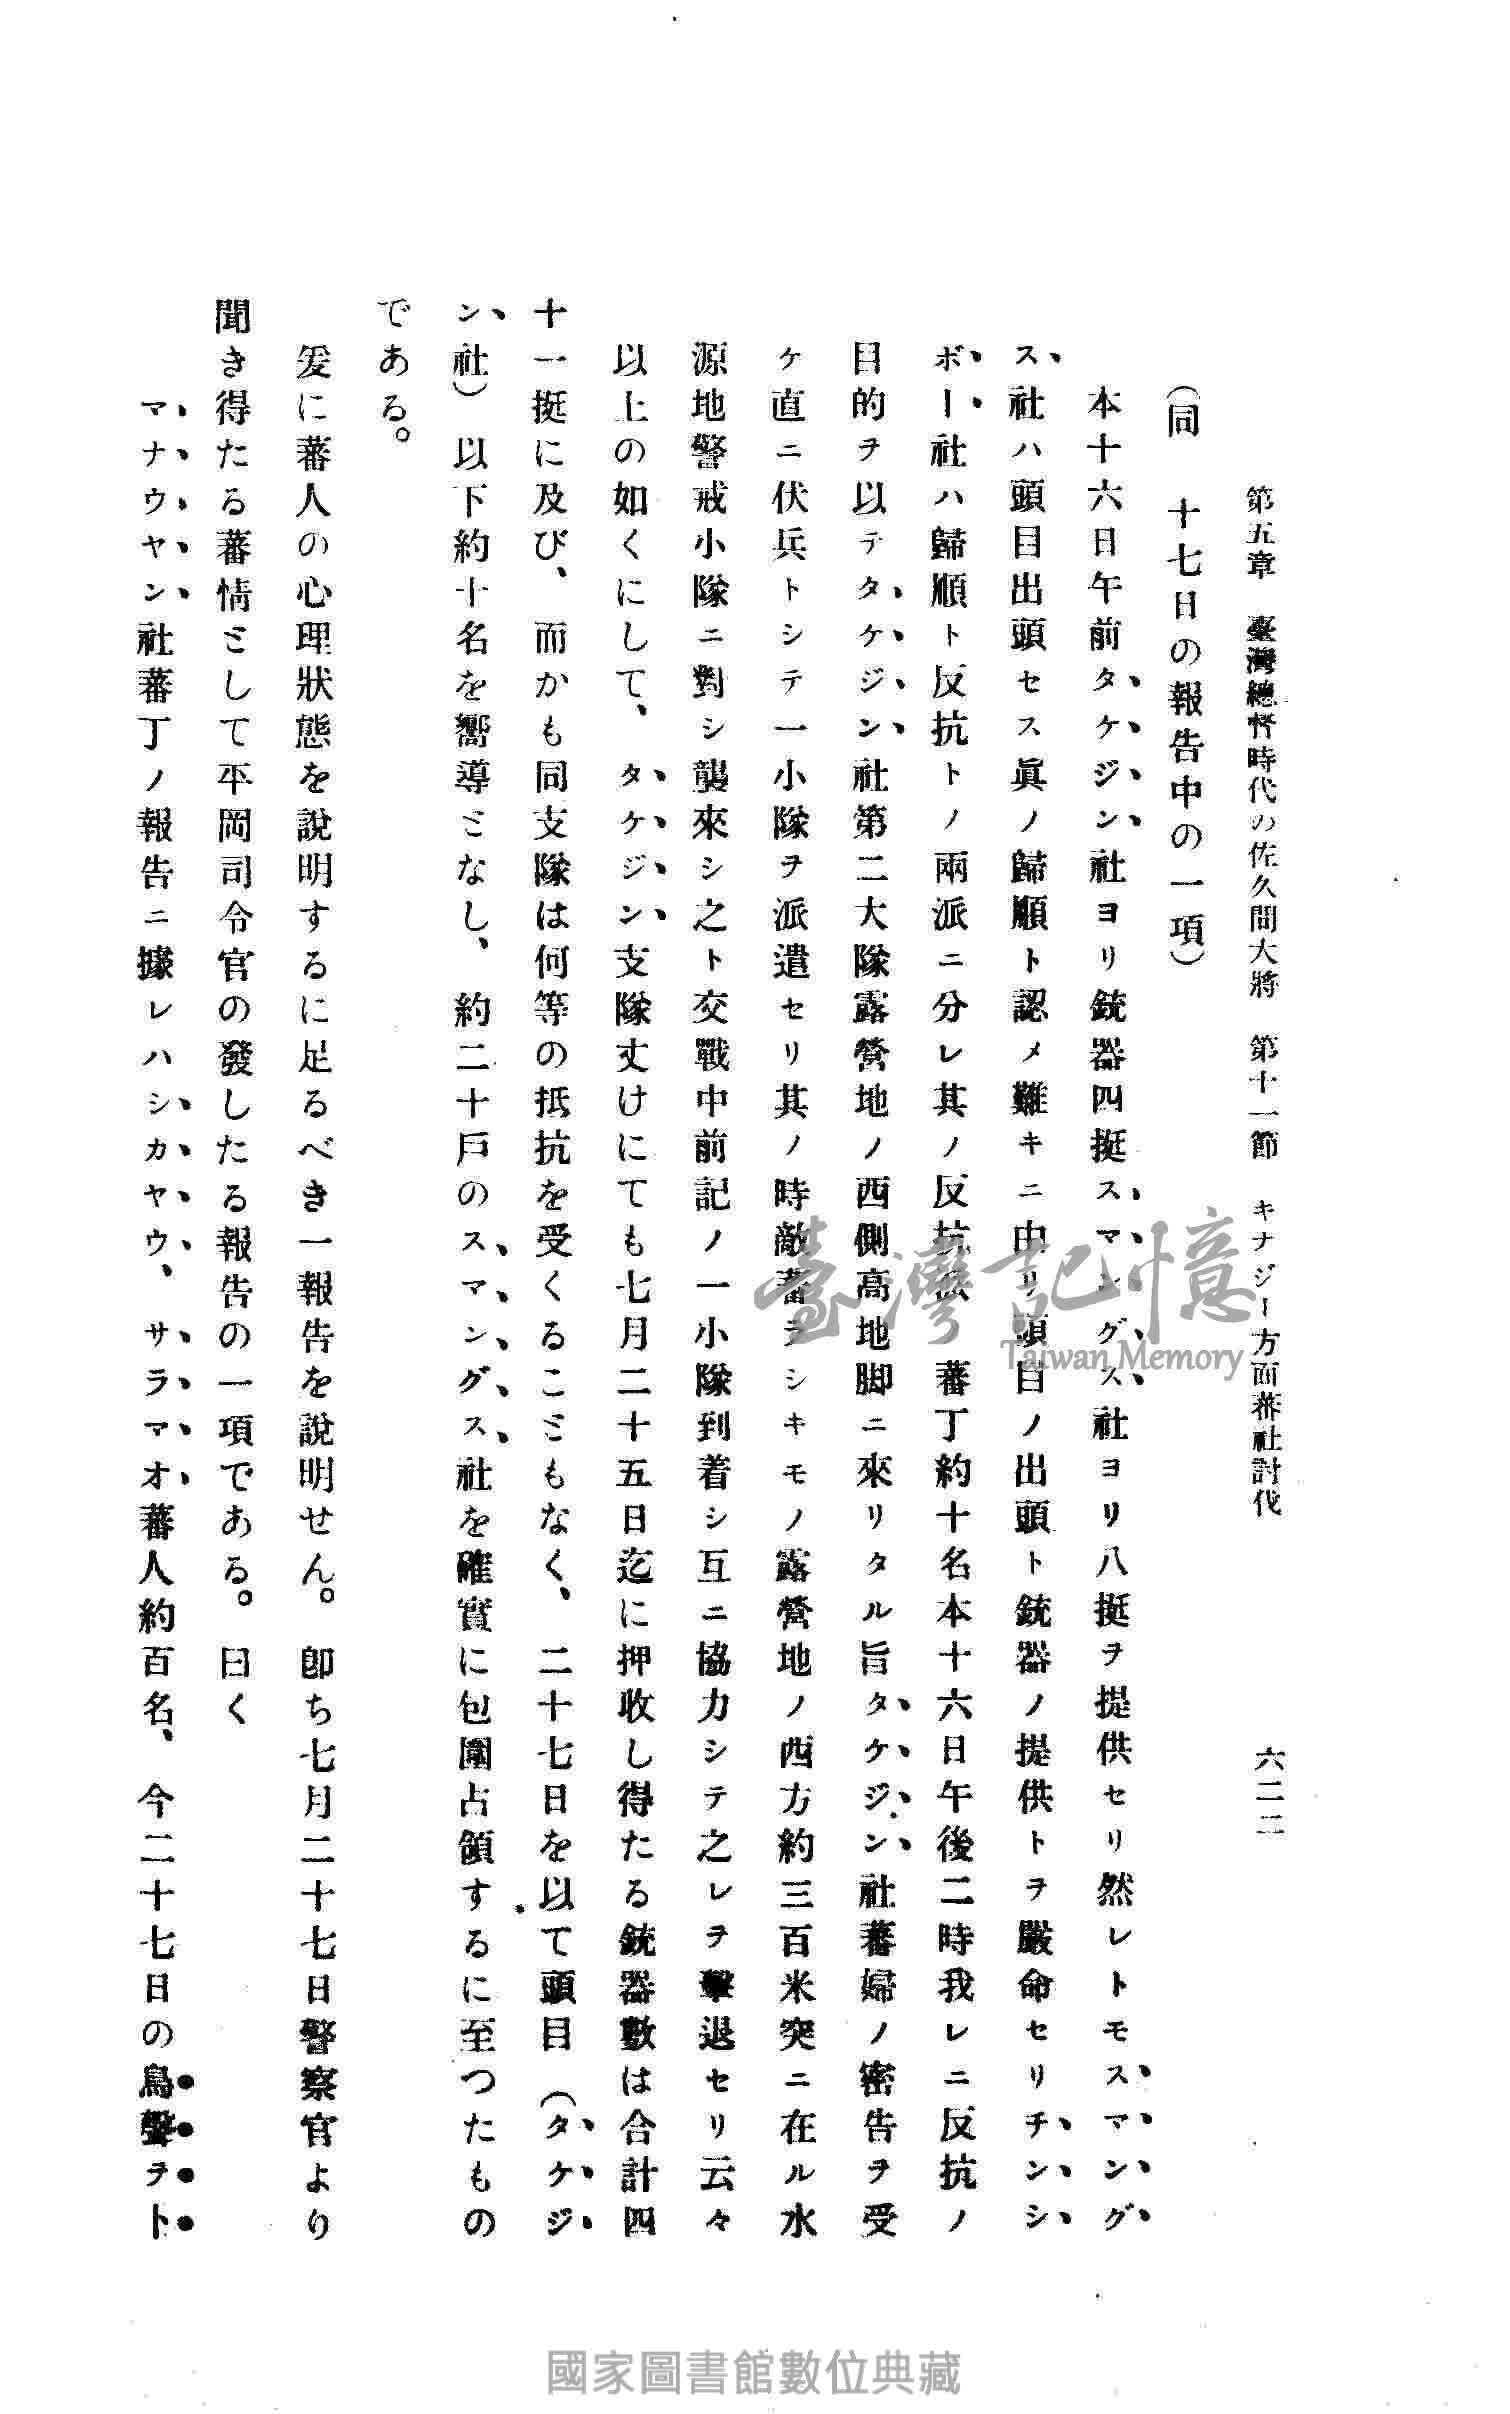 第五章　臺灣總督時代の佐久間大將　第十一節　キナジー方面蕃社討伐　六二二
（同　十七日の報告中の一項）
本十六日午前タケジン社ヨリ銃器四挺スマングス社ヨリ八挺ヲ提供セリ然レトモスマング
ス社ハ頭目出頭セス眞ノ歸順ト認メ難キニ由リ頭目ノ出頭ト銃器ノ提供トヲ嚴命セリチンシ
ボー社ハ歸順ト反抗トノ兩派ニ分レ其ノ反抗派蕃丁約十名本十六日午後二時我レニ反抗ノ
目的ヲ以テタケジン社第二大隊露營地ノ西側高地脚ニ來リタル旨タケジン社蕃婦ノ密告ヲ受
ケ直ニ伏兵トシテ一小隊ヲ派遣セリ其ノ時敵蕃ラシキモノ露營地ノ西方約三百米突ニ在ル水
源地警戒小隊ニ對シ襲來シ之ト交戰中前記ノ一小隊到着シ互ニ協力シテ之レヲ擊退セリ云々
以上の如くにして、タケジン支隊丈けにても七月二十五日迄に押收し得たる銃器數は合計四
十一挺に及び、而かも同支隊は何等の抵抗を受くることもなく、二十七日を以て頭目（タケジ
ン社）以下約十名を嚮導となし、約二十戶のスマングス社を確實に包圍占領するに至つたもの
である。
爰に蕃人の心理狀態を說明するに足るべき一報告を說明せん。卽ち七月二十七日警察官より
聞き得たる蕃情として平岡司令官の發したる報告の一項である。曰く
マナウヤン社蕃丁ノ報告ニ據レハシカヤウ、サラマオ蕃人約百名、今二十七日の鳥聲ヲト
臺灣記憶
Taiwan Memory
國家圖書館數位典藏